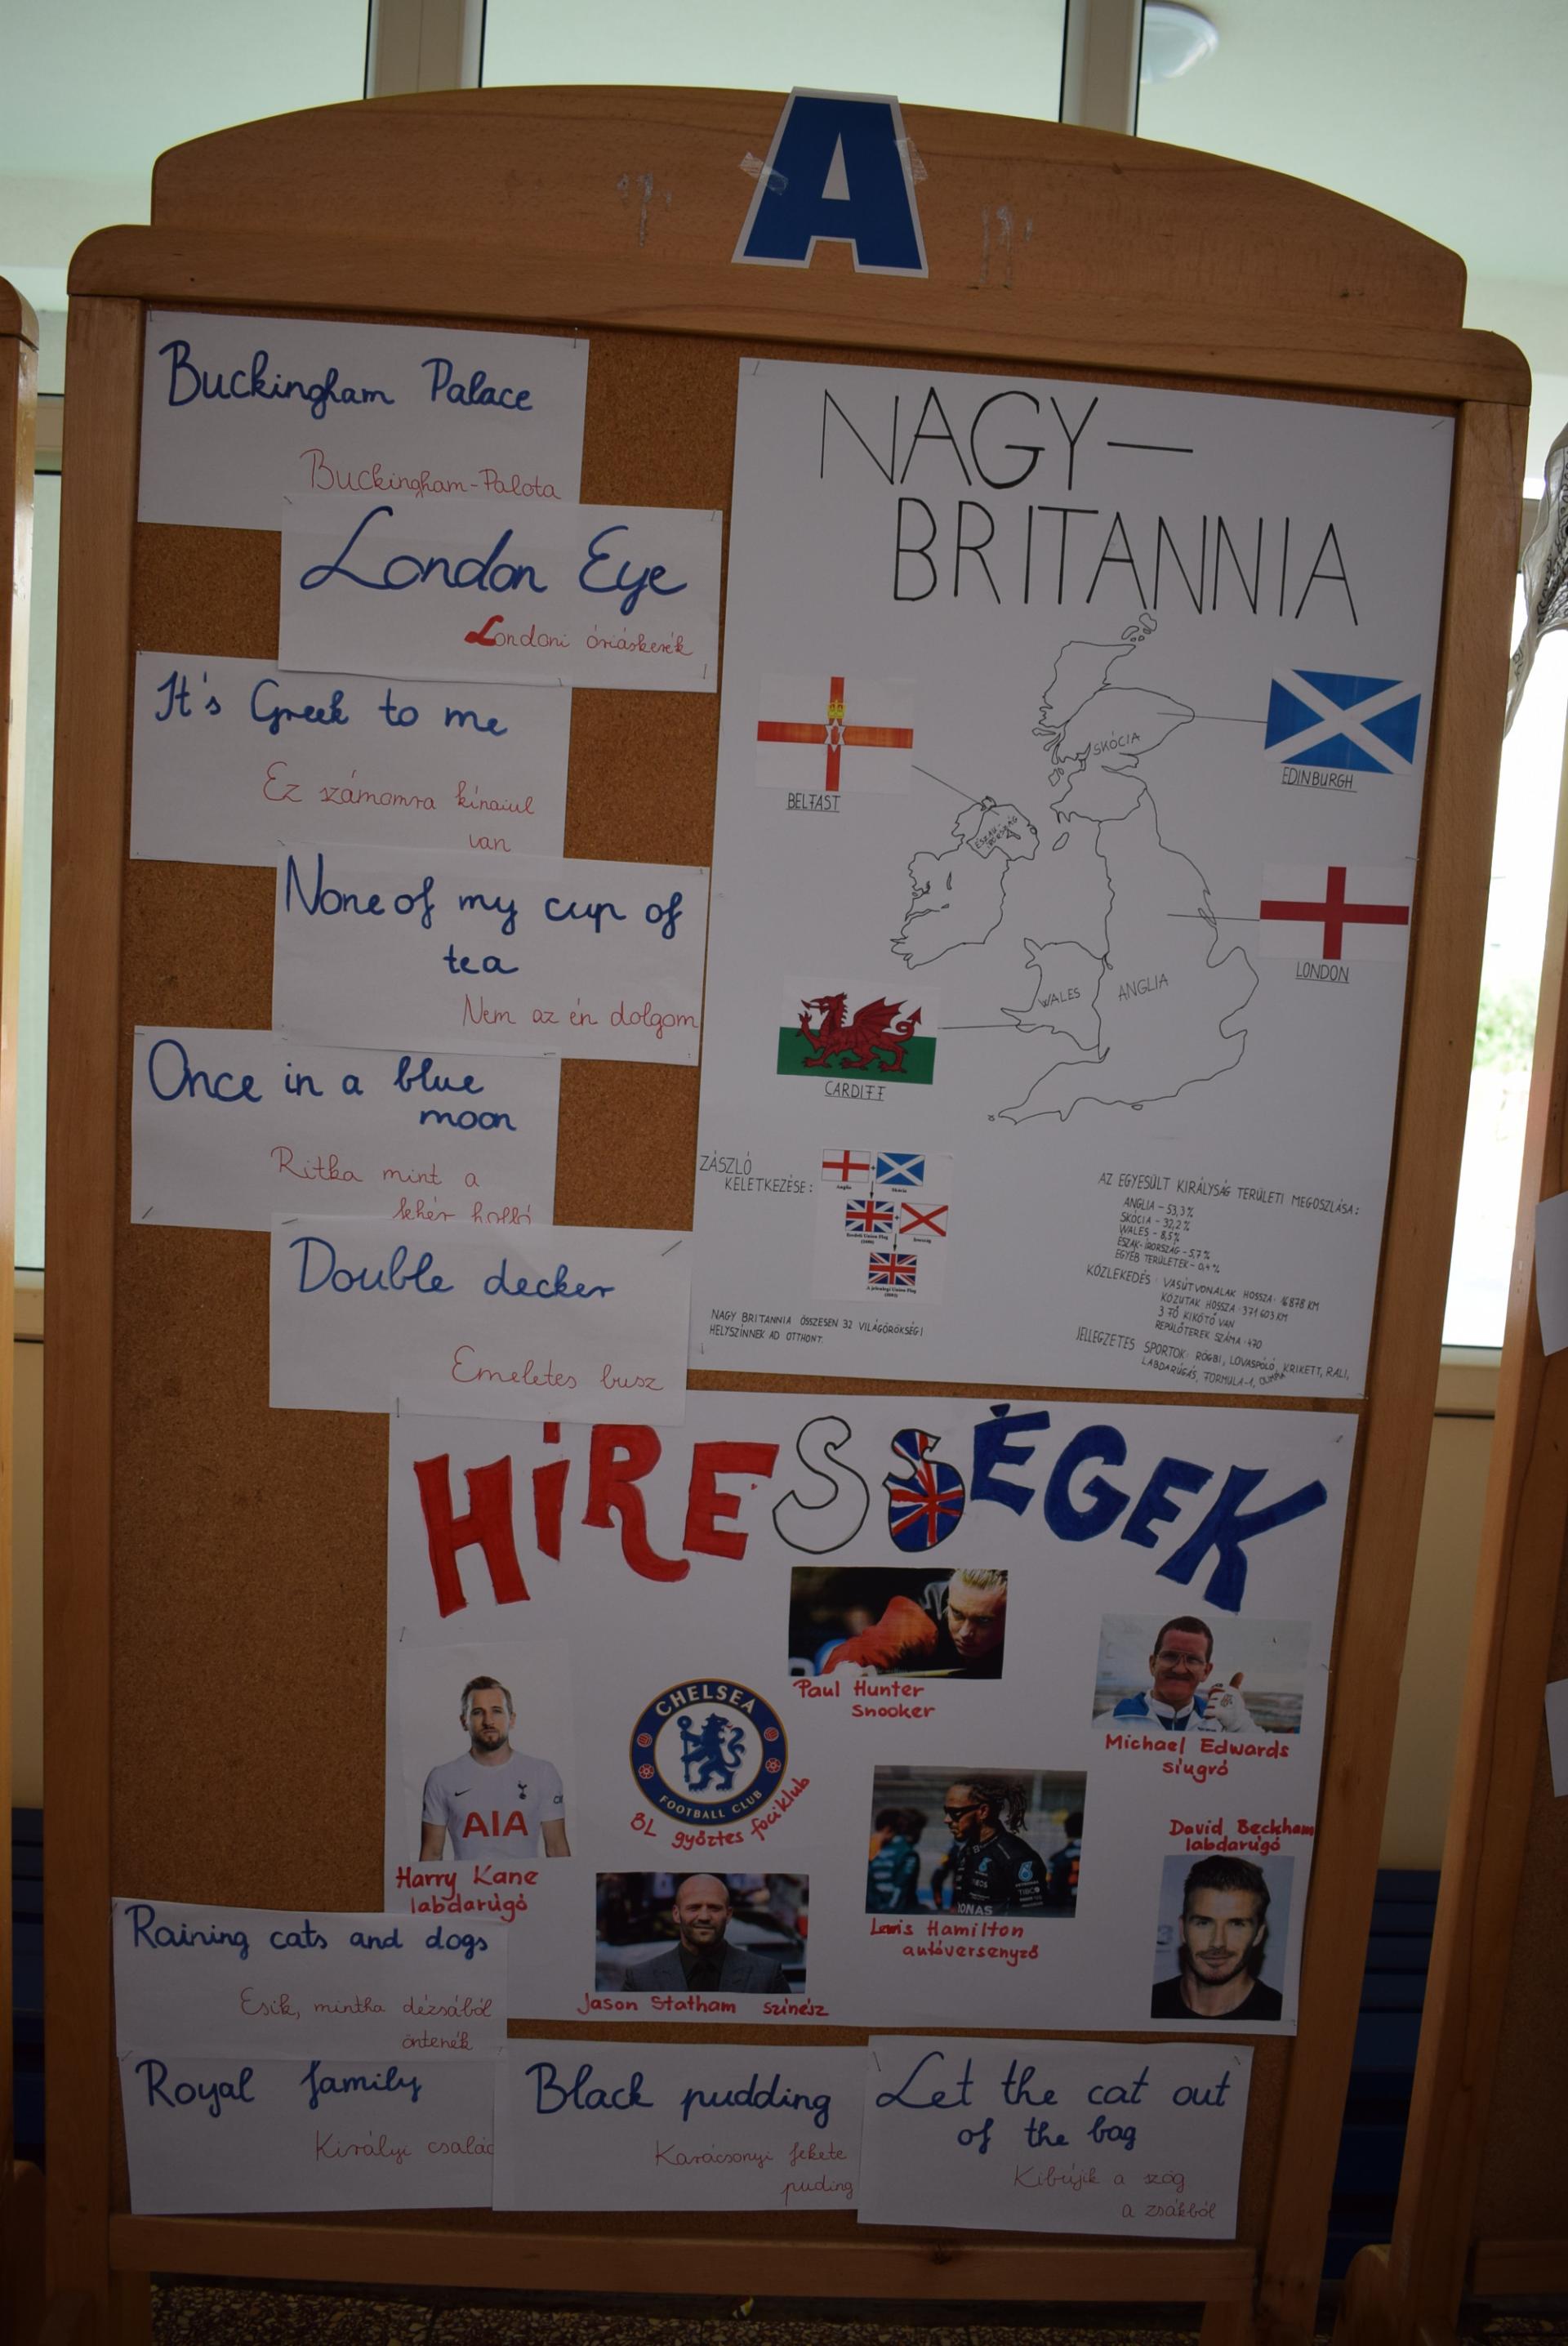 A
Buckingham Palace
Buckingham-Palota
London Eye
Londoni óriáskerék
It's Greek to me
Ez számomra kínaiul
van
None of my cup of
tea
Nem az én dolgom
Once in a blue
moon
Ritka mint a
fehér holló
Double decker
Emeletes busz
NAGY-
BRITANNIA
SKÓCIA
EDINBURGH
BELFAST
ÉSZAK-
ÍRORSZÁG
LONDON
WALES
ANGLIA
CARDIFF
ZÁSZLÓ
KELETKEZÉSE:
Anglia
Skócia
NAGY BRITANNIA ÖSSZESEN 32 VILÁGÖRÖKSÉGI
HELYSZÍNNEK AD OTTHONT.
AZ EGYESÜLT KIRÁLYSÁG TERÜLETI MEGOSZLÁSA:
ANGLIA - 53,3%
SKÓCIA - 32,2%
WALES - 8,5%
ÉSZAK-ÍRORSZÁG - 5,7%
EGYÉB TERÜLETEK - 0,4%
KÖZLEKEDÉS: VASÚTVONALAK HOSSZA: 16878 KM
KÖZUTAK HOSSZA: 371603 KM
3 FŐ KIKÖTŐ VAN
REPÜLŐTEREK SZÁMA: 470
JELLEGZETES SPORTOK: RÖGBI, LOVASPÓLÓ, KRIKETT, RALI,
LABDARÚGÁS, FORMULA-1,
HÍRESSÉGEK
Paul Hunter
Snooker
Michael Edwards
síugró
CHELSEA
FOOTBALL CLUB
BL győztes fociklub
AIA
Harry Kane
labdarúgó
Lewis Hamilton
autóversenyző
David Beckham
labdarúgó
Jason Statham színész
Raining cats and dogs
Esik, mintha dézsából
öntenék
Royal family
Királyi család
Black pudding
Karácsonyi fekete
puding
Let the cat out
of the bag
Kibújik a szög
a zsákból